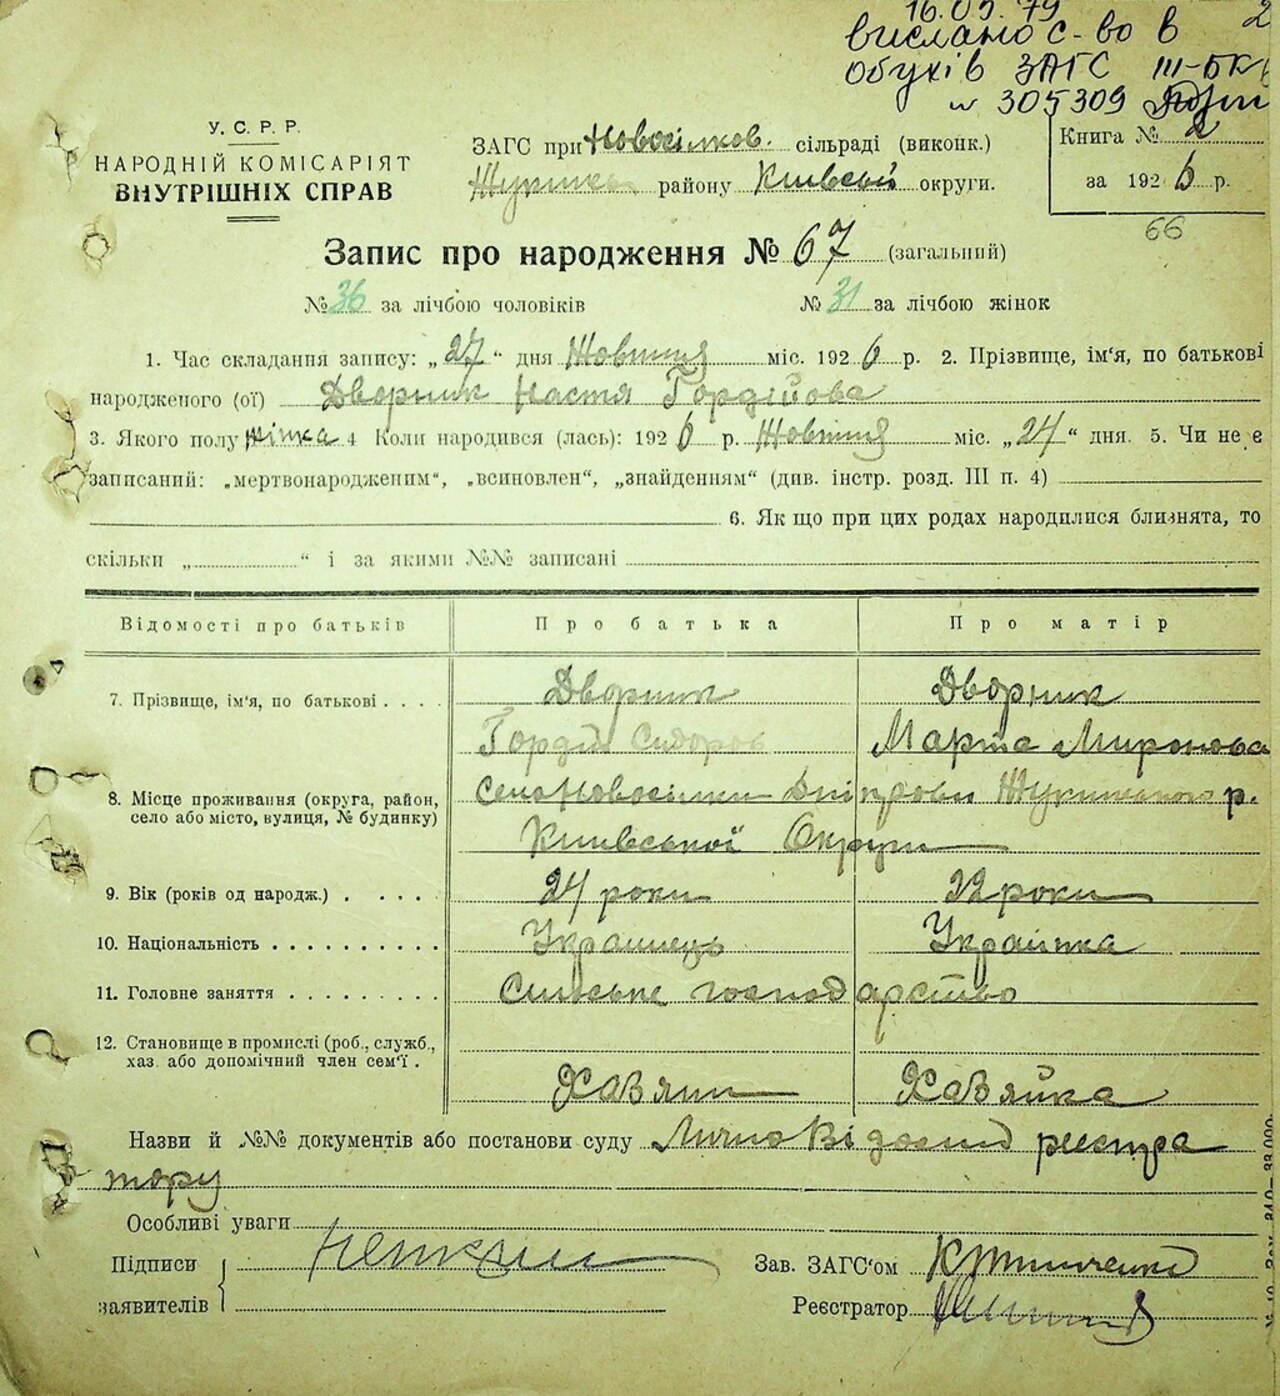 16.05.79
вислано с-во в 2
Обухів ЗАГС III-БК
№ 305309
У. С. Р. Р.
НАРОДНІЙ КОМІСАРІЯТ
ВНУТРІШНІХ СПРАВ
ЗАГС при Новосілков. сільраді (виконк.)
району Київськ округи.
Книга № 2
за 1926 р.
66
Запис про народження № 67 (загальний)
№ 36 за лічбою чоловіків № 31 за лічбою жінок
1. Час складання запису: „27“ дня Жовтня міс. 1926 р. 2. Прізвище, ім'я, по батькові
народженого (ої) Дворник Настя Гордійова
3. Якого полу жінка 4 Коли народився (лась): 1926 р. Жовтня міс. „24“ дня. 5. Чи не є
записаний: „мертвонародженим“, „всиновлен“, „знайденням“ (див. інстр. розд. III п. 4)
6. Як що при цих родах народилися близнята, то
скільки „ “ і за якими №№ записані
Відомості про батьків Про батька Про матір
7. Прізвище, ім'я, по батькові . . . . Дворник Дворник
Гордій Сидоров Марта Миронова
8. Місце проживання (округа, район,
село або місто, вулиця, № будинку)
Село Новосілки Дніпрови р.
Київської Округи
9. Вік (років од народж.) . . . . 24 роки 22 роки
10. Національність . . . . . . . . . . Українець Українка
11. Головне заняття . . . . . . . . . Сільське господарство
12. Становище в промислі (роб., служб.,
хаз. або допомічний член сем'ї .
Хавяїн Хавяйка
Назви й №№ документів або постанови суду Лично Відомий реєстра
тору
Особливі уваги
Підписи
заявителів
Зав. ЗАГС'ом
Реєстратор